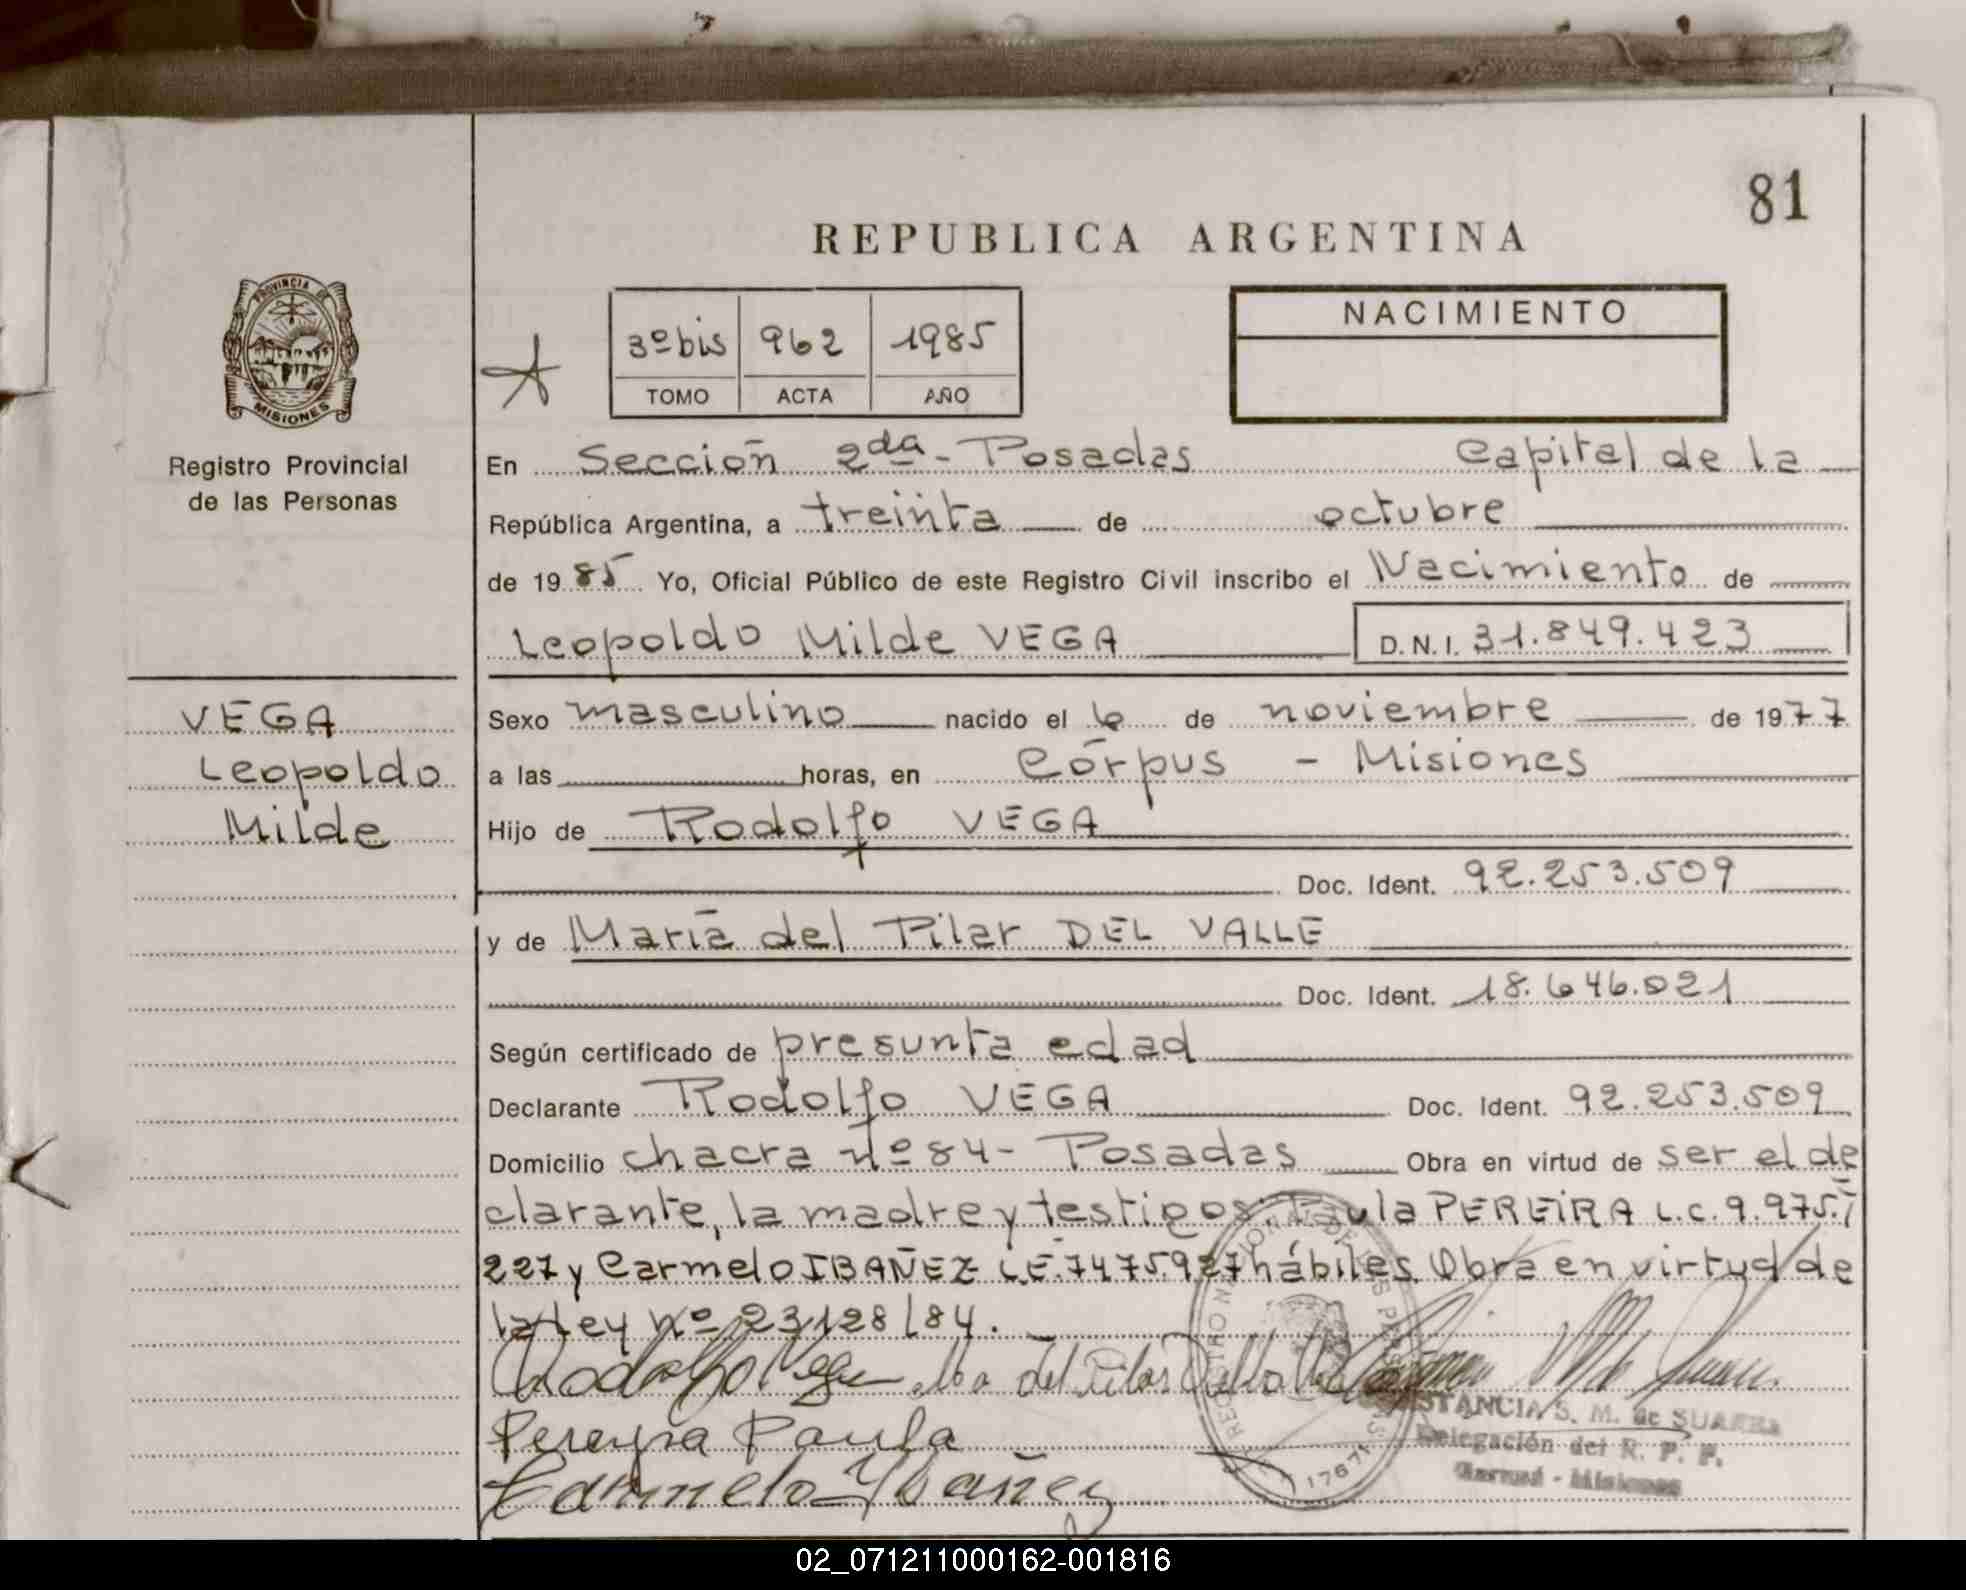 81
REPUBLICA ARGENTINA
PROVINCIA DE
MISIONES
Registro Provincial
de las Personas
3º bis 962 1985
TOMO ACTA AÑO
NACIMIENTO
En Sección 2da - Posadas Capital de la
República Argentina, a treinta de octubre
de 19 85 Yo, Oficial Público de este Registro Civil inscribo el Nacimiento de
Leopoldo Milde VEGA D.N.I. 31.849.423
VEGA
Leopoldo
Milde
Sexo masculino nacido el 6 de noviembre de 1977
a las horas, en Córpus - Misiones
Hijo de Rodolfo VEGA
Doc. Ident. 92.253.509
y de María del Pilar DEL VALLE
Doc. Ident. 18.646.021
Según certificado de presunta edad
Declarante Rodolfo VEGA Doc. Ident. 92.253.509
Domicilio chacra Nº 84 - Posadas Obra en virtud de ser el de
clarante, la madre y testigos: Paula PEREIRA L.C. 9.975.
227 y Carmelo IBAÑEZ L.E. 7475927 hábiles. Obra en virtud de
la Ley Nº 23128/84.
Rodolfo Vega del Pilar
Pereyra Paula
Carmelo Ybañez
S. M. de SUAREZ
Delegación del R. P. P.
Misiones
17671
02_071211000162-001816